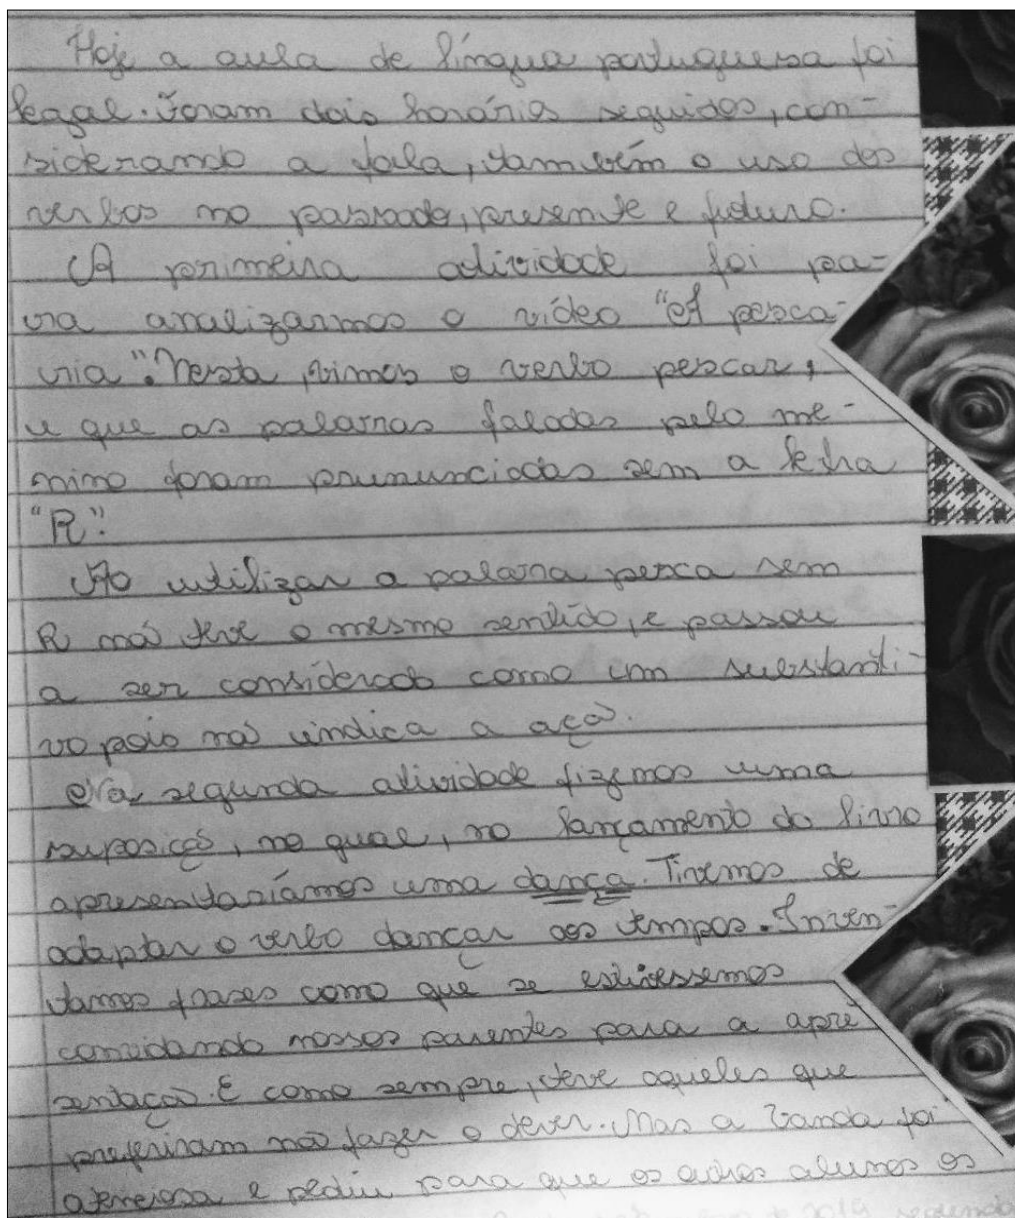 Hoje a aula de língua portuguesa foi
legal. Foram dois horários seguidos, con-
siderando a fala, também o uso dos
verbos no passado, presente e futuro.
A primeira atividade foi pa-
ra analizarmos o vídeo "A pesca-
ria". Nesta, vimos o verbo pescar,
e que as palavras faladas pelo me-
nino foram prununciadas sem a letra
"R".
Ao utilizar a palavra pesca sem
R não teve o mesmo sentido, e passou
a ser considerado como um substanti-
vo pois não indica a ação.
Na segunda atividade fizemos uma
suposição, no qual, no lançamento do livro
apresentaríamos uma dança. Tivemos de
adaptar o verbo dançar aos tempos. Inven-
tamos frases como que se estivessemos
convidando nossos parentes para a apre
sentação. E como sempre, teve aqueles que
preferiram não fazer o dever. Mas a Vanda foi
atenciosa e pediu para que os outros alunos os